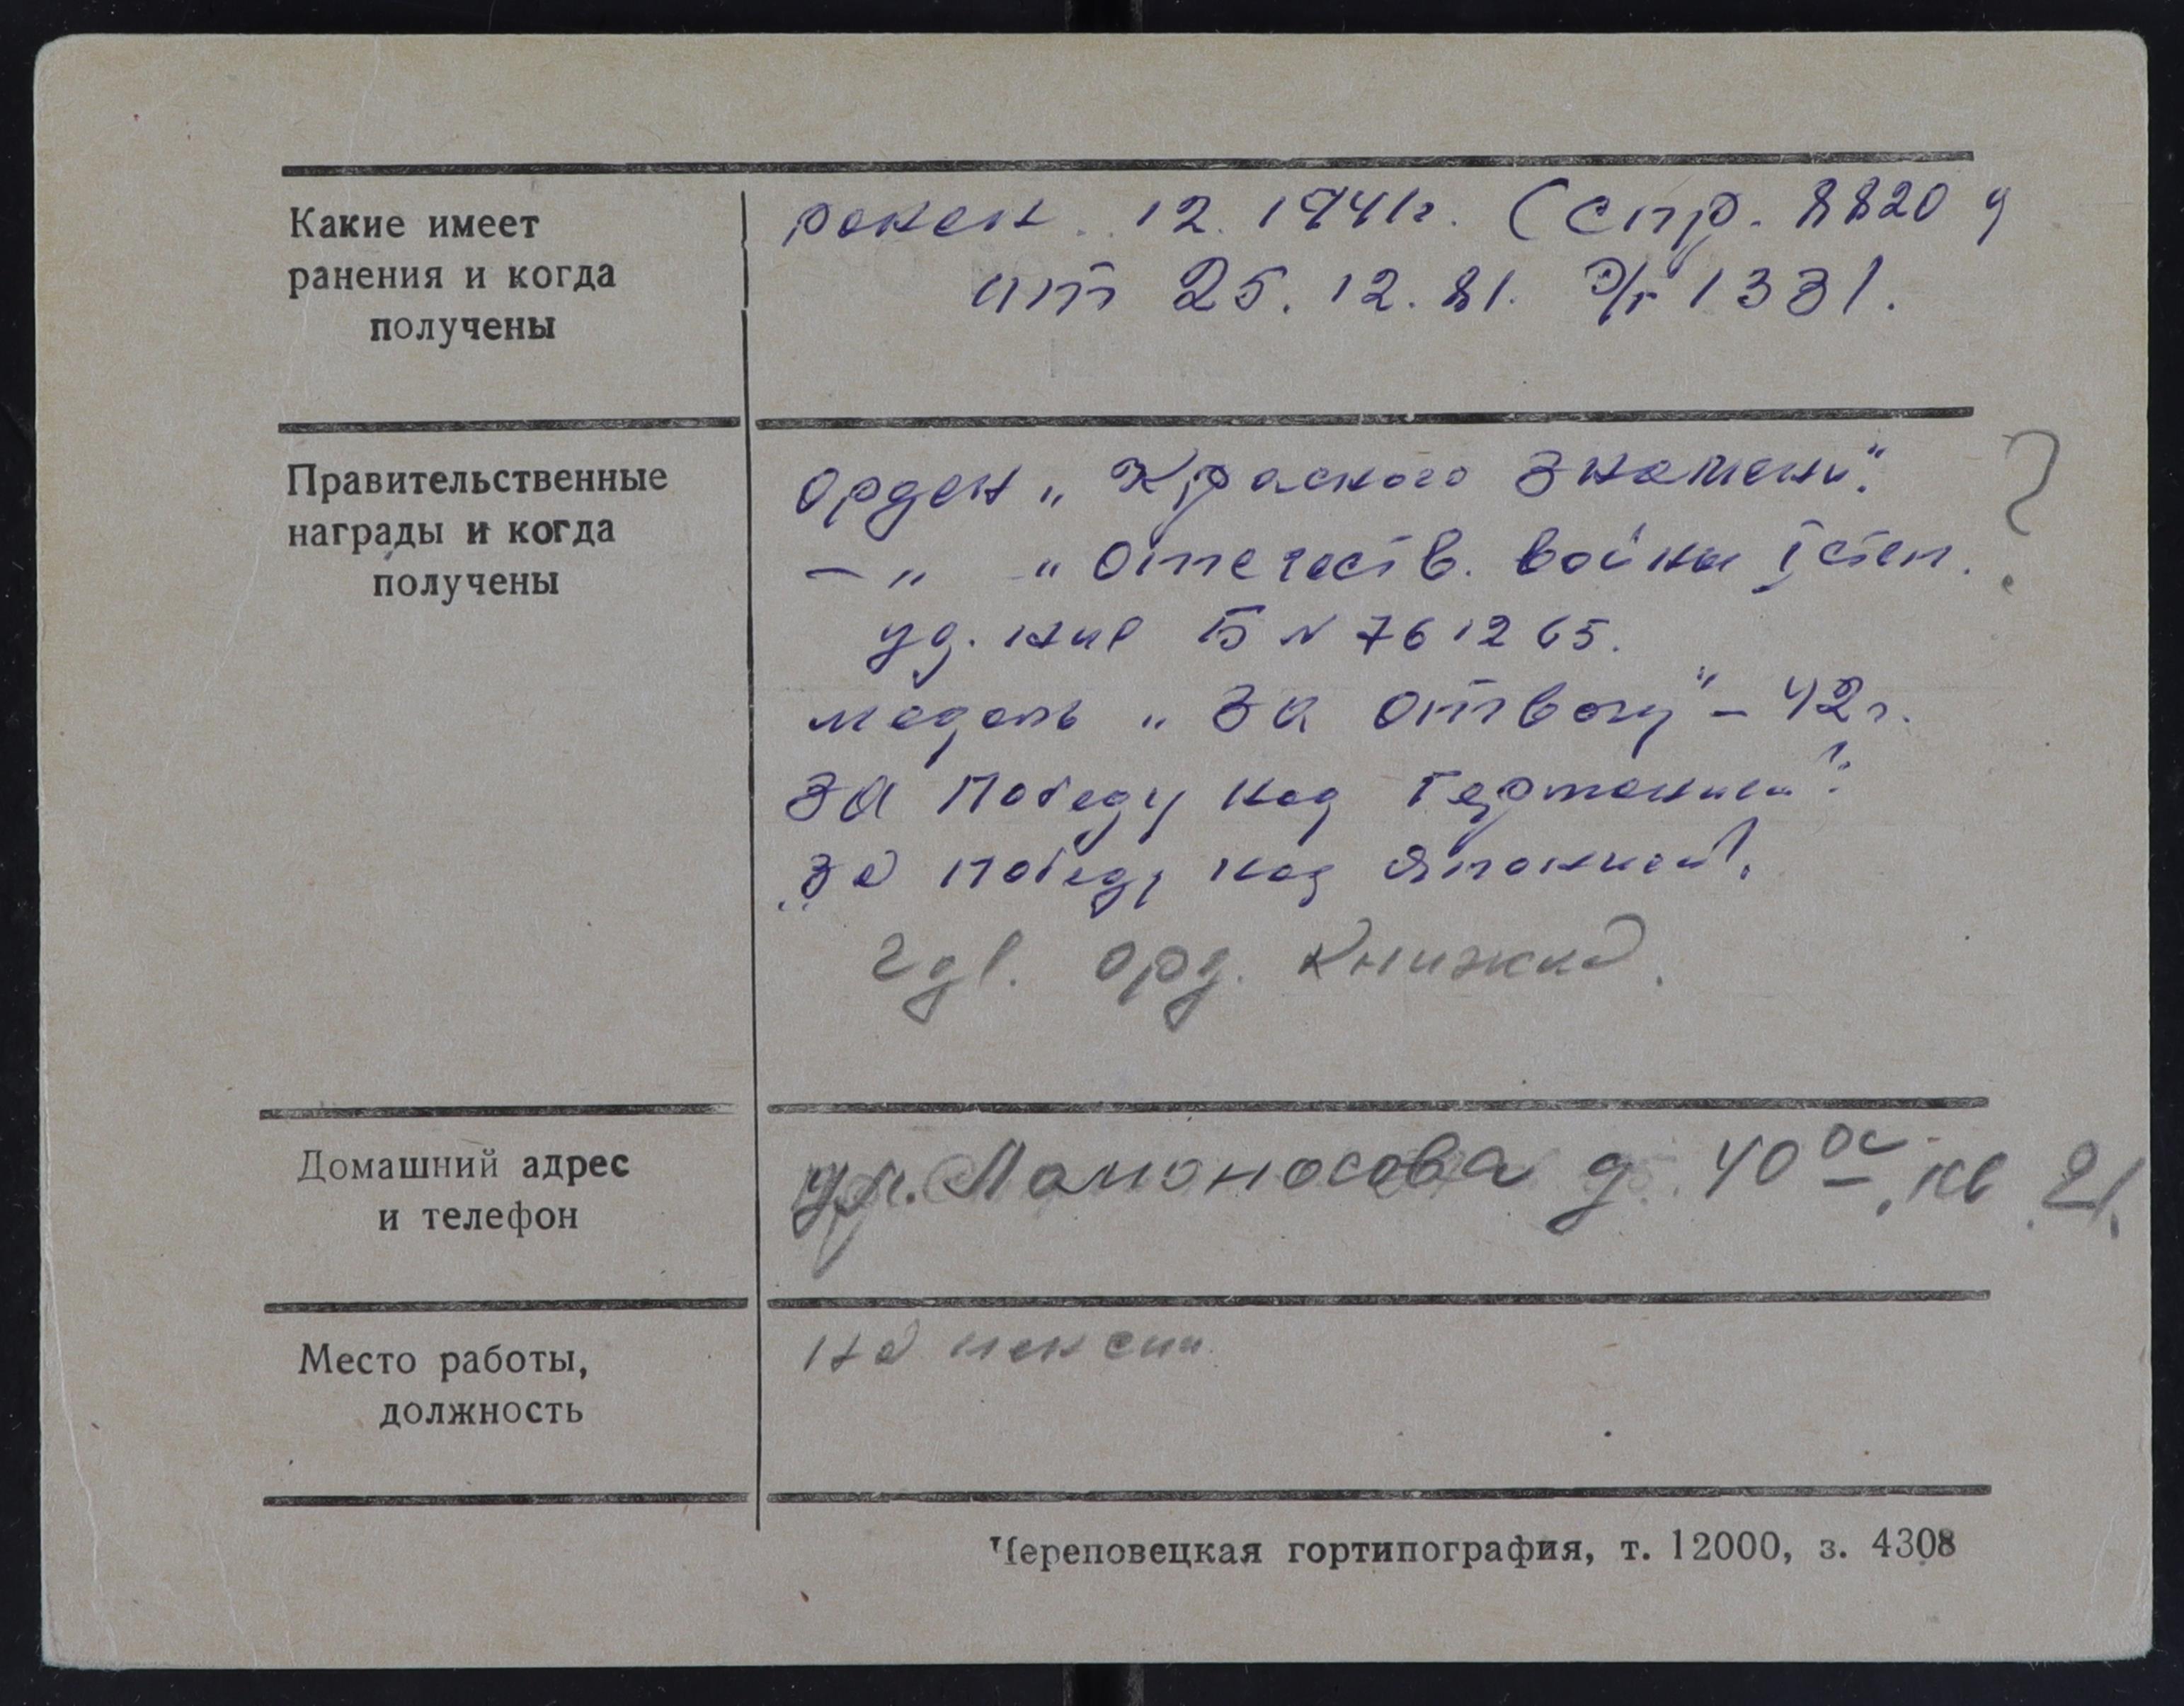 Какие имеет
ранения и когда
получены
ранен 12. 1941г. (спр. 8820 у
от 25. 12. 81. Э/г 1331.
Правительственные
награды и когда
получены
Орден „Красного Знамени".
?
— " — " Отечеств. войны I степ.
уд. Б N 761265.
медаль „За Отвагу" – 42г.
За Победу над Германией".
„За Победу над Японией".
гдe. орд. Книжка.
Домашний адрес
и телефон
ул. Ломоносова д. 40 кв 21.
Место работы,
должность
на пенсии
Череповецкая гортипография, т. 12000, з. 4308